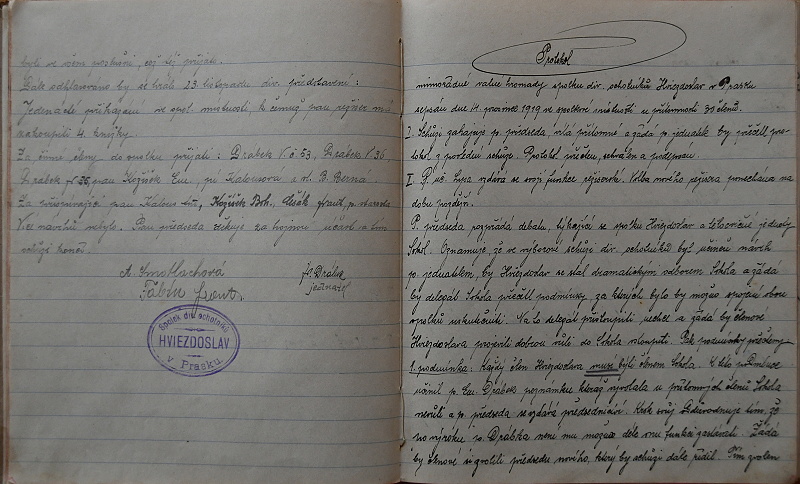 byli ve všem poslušni, což též přijato.
Dále odhlasováno by se hrálo 23. listopadu div. představení:
Jedenácté přikázání ve spol. místnosti k čemuž pan režiser má
zakoupiti 4 knížky.
Za činné členy do spolku přijati: Drábek V. č. 53, Drábek V. 36
Drábek F. 35, pan Kožíšek Em., pí a sl. B. Berná
Za přispívající pan Kalous ant., Kožíšek Boh., Lišák frant., p. starosta
Více návrhů nebylo. Pan předseda děkuje za hojnou účast a tím
schůzi končí.
A. Smotlachová
Fábin frant.
F. Drábek
jednatel
Spolek div. ochotníků
HVIEZDOSLAV
v Prasku
Protokol
mimořádné valné hromady spolku div. ochotníků Hviezdoslav v Prasku
sepsán dne 14. prosince 1919 ve spolkové místnosti u přítomnosti 30 členů.
I. Schůzi zahajuje p. předseda, vítá přítomné a žádá p. jednatele by přečetl pro-
tokol z poslední schůze. Protokol přečten, schválen a podepsán.
II. P. uč. Lysa vzdává se svojí funkce režisérské. Volba nového režiséra ponechána na
dobu pozdější.
P. předseda zahajuje debatu, týkající se spolku Hviezdoslav a tělocvičné jednoty
Sokol. Oznamuje, že ve výborové schůzi div. ochotníků byl učiněn návrh
p. jednatelem, by Hviezdoslav se stal dramatickým odborem Sokola a žádá
by delegát Sokola přečetl podmínky, za kterých bylo by možno spojení obou
spolků uskutečniti. Na to delegát přistoupiti nechce a žádá by členové
Hviezdoslava projevili dobrou vůli do Sokola vstoupiti. Pak podmínky přečteny.
1. podmínka: Každý člen Hviezdoslava musí býti členem Sokola. K této podmínce
učinil p. Em. Drábek poznámku, kteráž vyvolala u přítomných členů Sokola
nevůli a p. předseda se vzdává předsednictví. Krok svůj odůvodňuje tím, že
po výroku p. Drábka není mu možno déle onu funkci zastávati. Žádá
by členové si zvolili předsedu nového, který by schůzi dále řídil. Tím zvolen